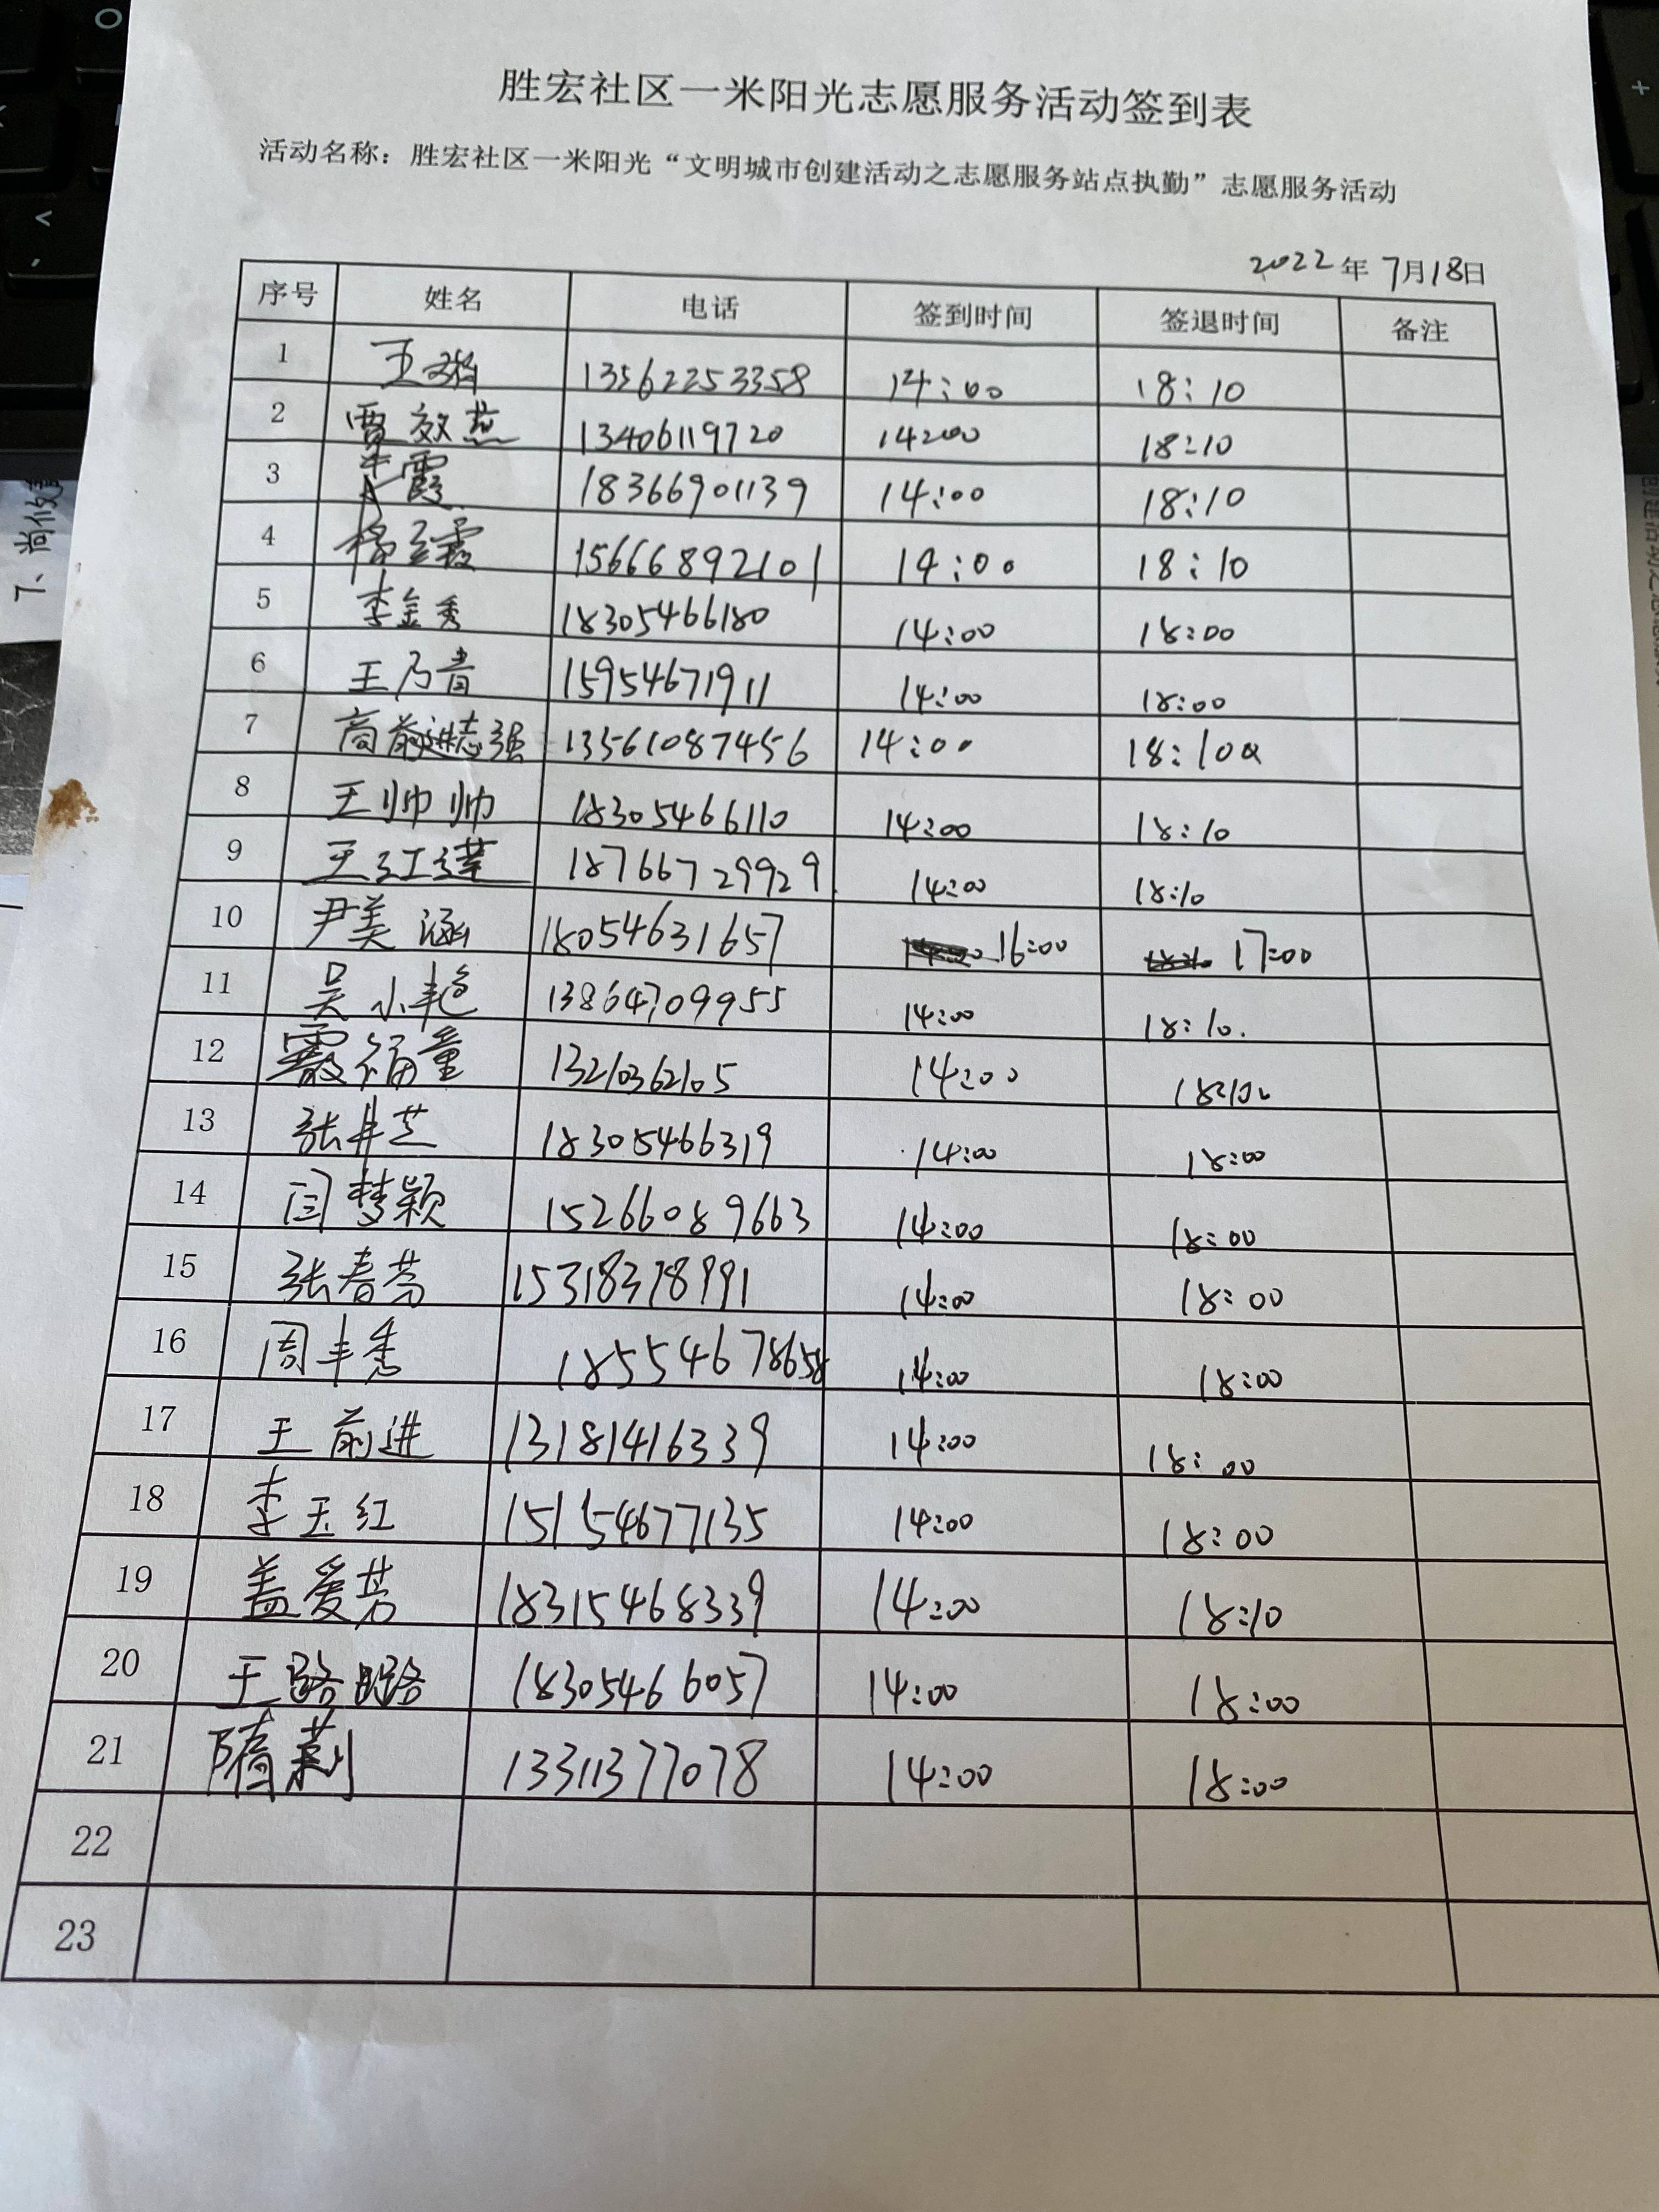 胜宏社区一米阳光志愿服务活动签到表
活动名称：胜宏社区一米阳光“文明城市创建活动之志愿服务站点执勤”志愿服务活动
2022年7月18日
序号 姓名 电话 签到时间 签退时间 备注
1 王 13562253358 14:00 18:10
2 贾效燕 13406119720 14:00 18:10
3 霞 18366901139 14:00 18:10
4 杨玉霞 15666892101 14:00 18:10
5 李金秀 18305466180 14:00 18:00
6 王乃青 15954671911 14:00 18:00
7 13561087456 14:00 18:10
8 王帅帅 18305466110 14:00 18:10
9 王红莲 18766729929 14:00 18:10
10 尹美涵 18054631657 16:00 17:00
11 吴小艳 13864709955 14:00 18:10.
12 福童 13210362105 14:00 18:10
13 张井芝 18305466319 14:00 18:00
14 闫梦颖 15266089663 14:00 18:00
15 张春芳 15318378991 14:00 18:00
16 周丰秀 18554678658 14:00 18:00
17 王前进 13181416339 14:00 18:00
18 李玉红 15154677135 14:00 18:00
19 盖爱芳 18315468339 14:00 18:10
20 王路路 18305466057 14:00 18:00
21 隋莉 13311377078 14:00 18:00
22
23
7、尚俊